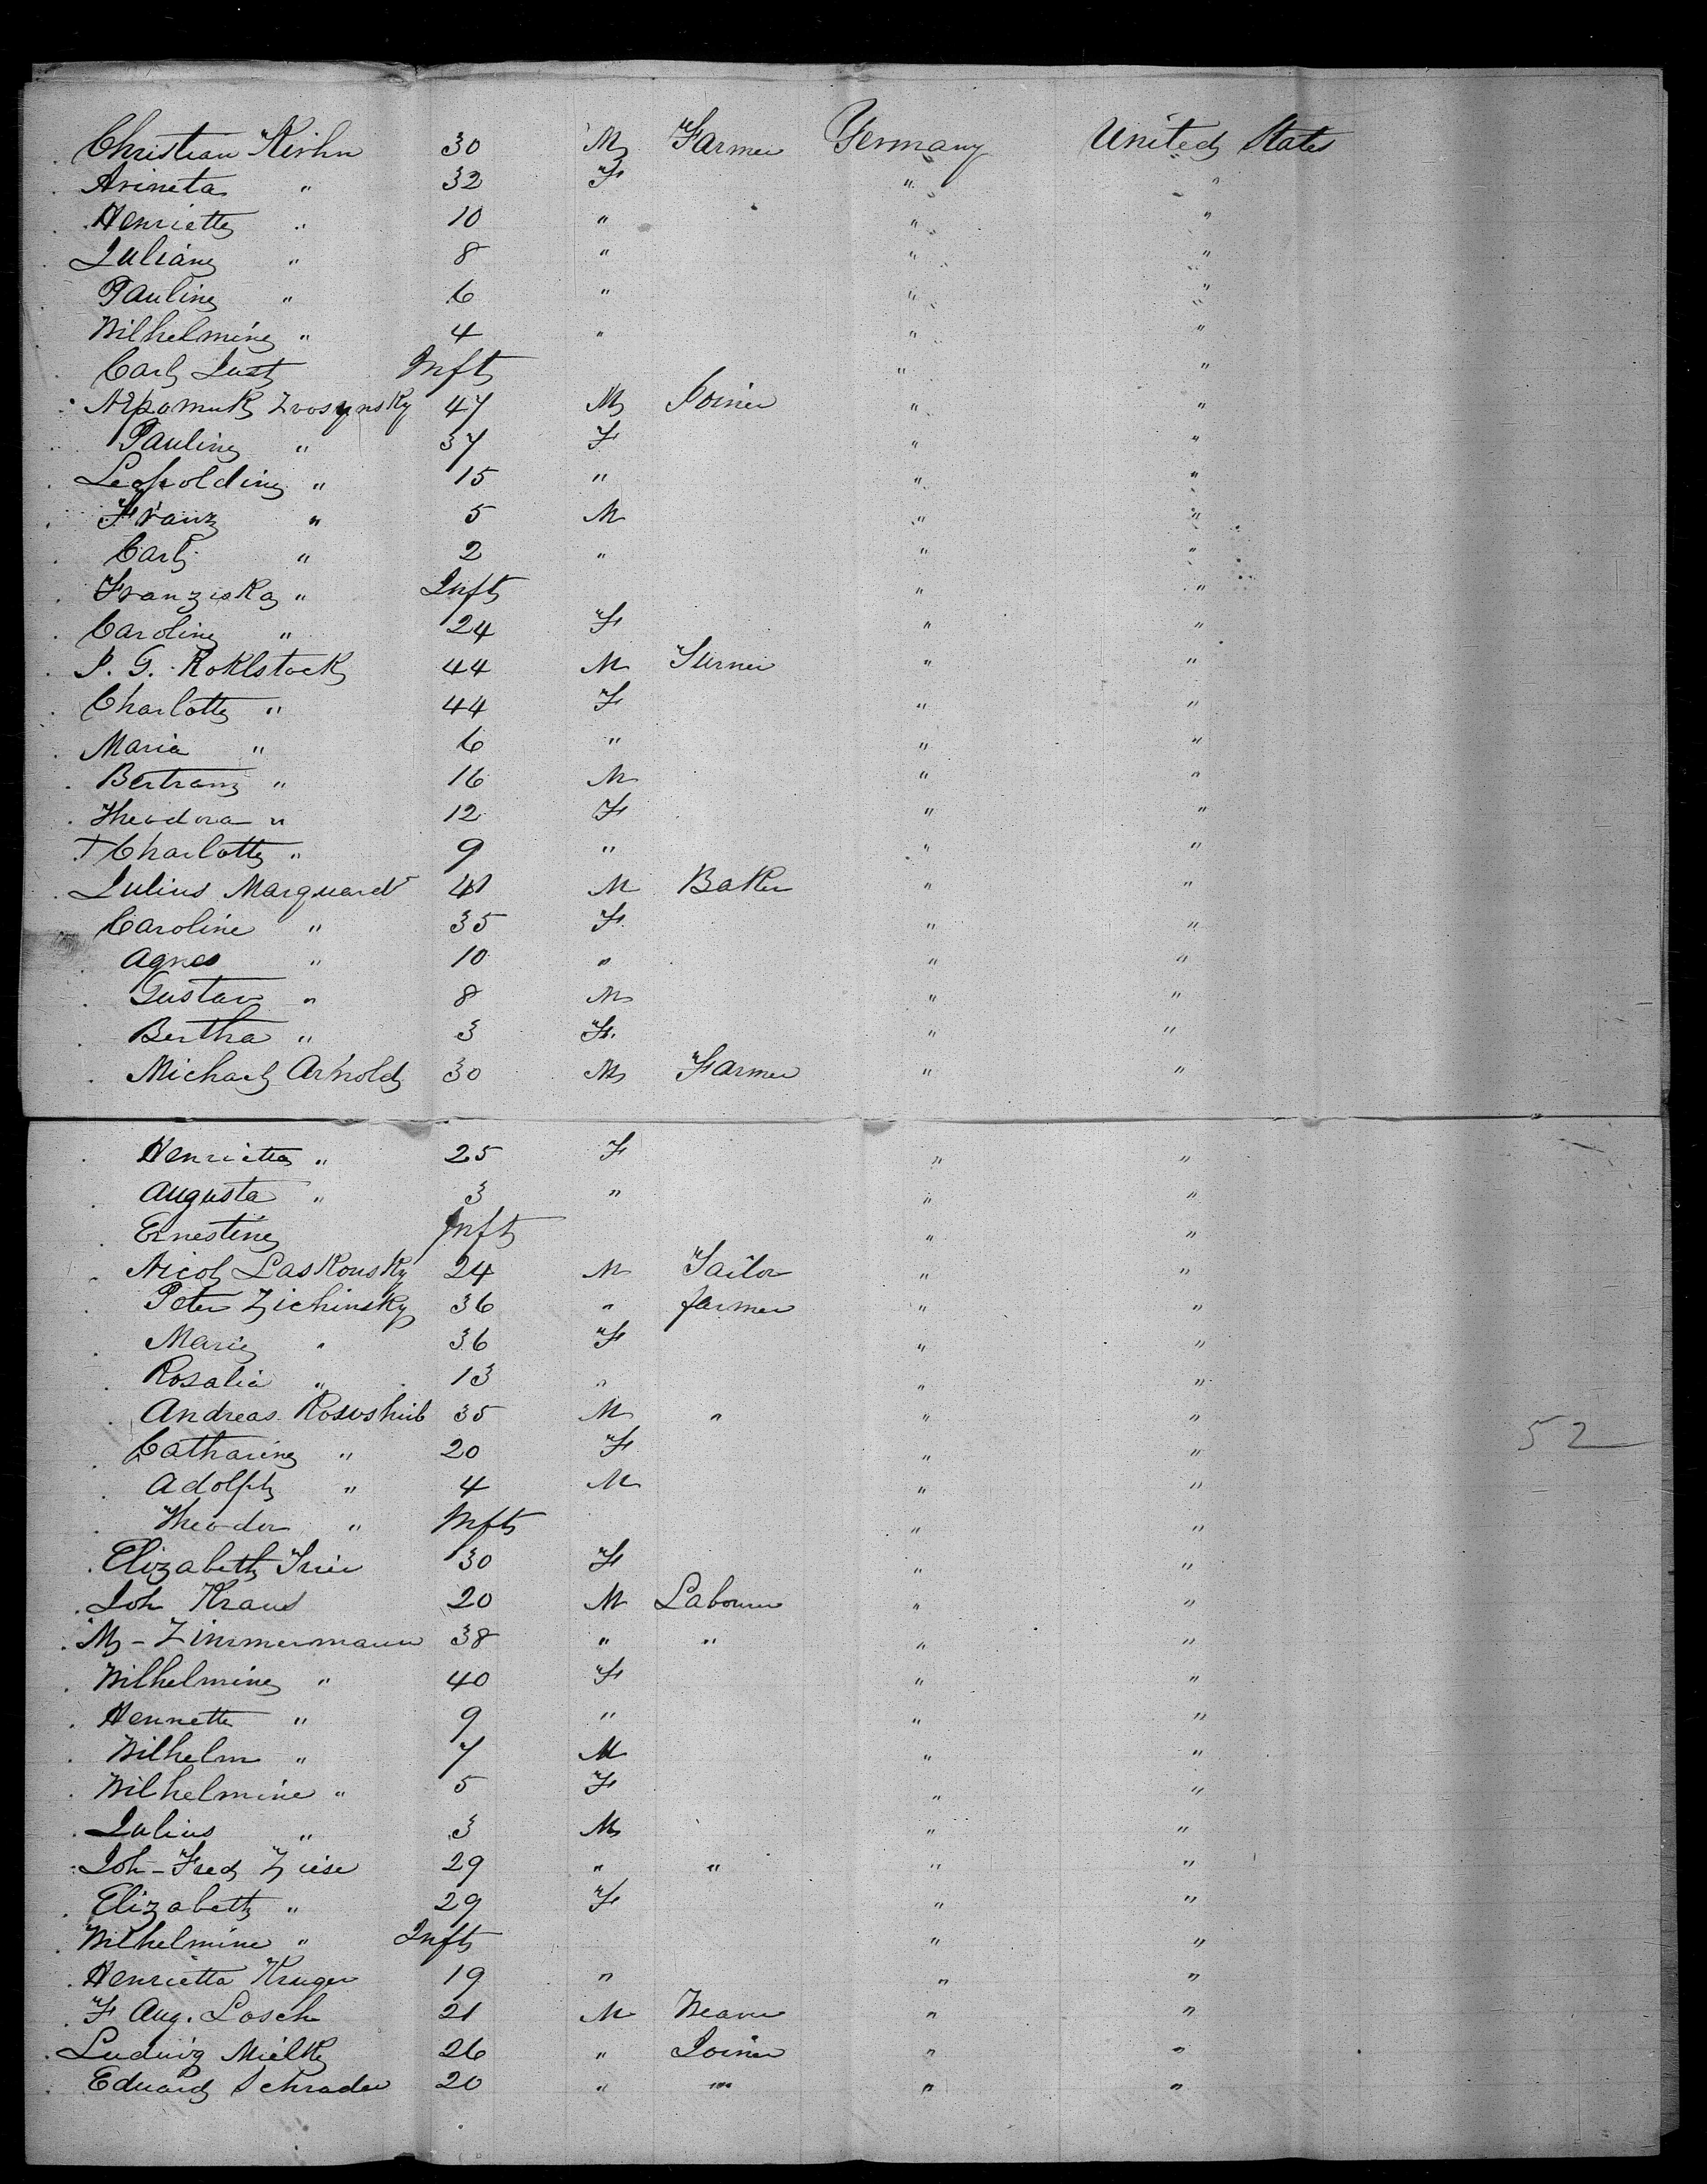 Christian Kirhn 30 M Farmer Germany United States
Arineta " 32 F " "
Henriette " 10 " " "
Juliane " 8 " " "
Pauline " 6 " " "
Wilhelmine " 4 " " "
Carl Just Inft " "
Nepomuk Zrosynsky 47 M Joiner " "
Pauline " 37 F " "
Leopoldine " 15 " " "
Franz " 5 M " "
Carl " 2 " " "
Franziska " Inft " "
Caroline " 24 F " "
J. G. Roklstock 44 M Turner " "
Charlotte " 44 F " "
Maria " 6 " " "
Bertram " 16 M " "
Theodora " 12 F " "
+ Charlotte " 9 " " "
Julius Marquardt 41 M Baker " "
Caroline " 35 F " "
Agnes " 10 " " "
Gustav " 8 M " "
Bertha " 3 F. " "
Michael Arnold 30 M Farmer " "
Henrietta " 25 F " "
Augusta " 3 " " "
Ernestine Inft " "
Nicol Laskousky 24 M Tailor " "
Peter Zichinsky 36 " farmer " "
Marie " 36 F " "
Rosalia " 13 " " "
Andreas 35 M " " "
Catharine " 20 F " "
Adolph " 4 M " "
Theodor " Inft " "
Elizabeth Trier 30 F " "
Joh Kraus 20 M Labourer " "
M - Zimmermann 38 " " " "
Wilhelmine " 40 F " "
Hennette " 9 " " "
Wilhelm " 7 M " "
Wilhelmine " 5 F " "
Julius " 3 M " "
Joh - Fred Ziese 29 " " " "
Elizabeth " 29 F " "
Wilhelmine " Inft " "
Henrietta Kruger 19 " " "
F Aug. Losch 21 M Weaver " "
Ludwig Mielke 26 " Joiner " "
Eduard Schrader 20 " " " "
52